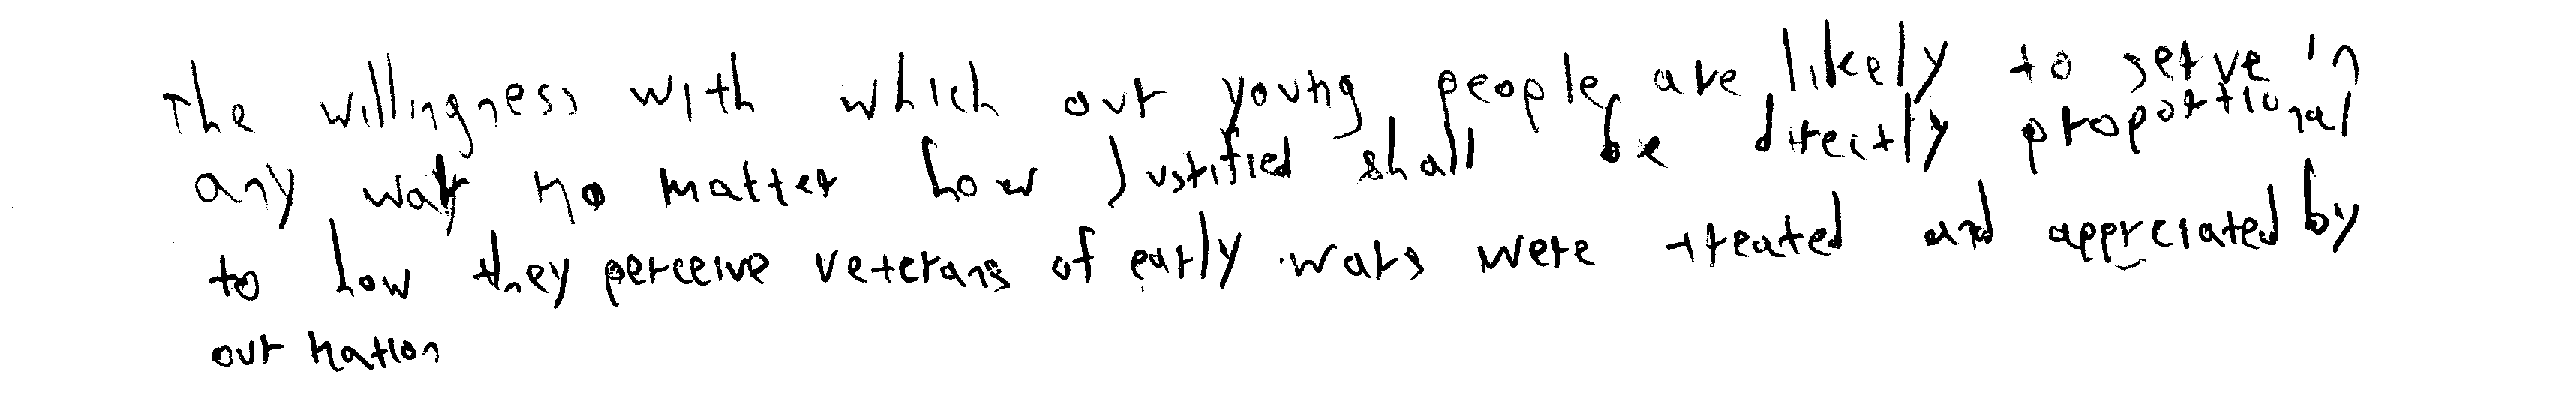 The willingness with which our young people are likely to serve in
any war no matter how Justified shall be directly proportional
to how they perceive veterans of early wars were treated and appreciated by
our nation